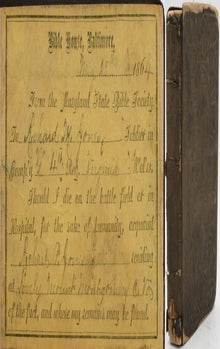 Bible House, Baltimore,
1864
From the Maryland State Bible Society,
To Leonard M. Jones, Soldier in
Comp'y 4th Reg. Vols.
Should I die on the battle field or in
Hospital, for the sake of humanity, acquaint
residing
at Lovely Mount Montgomery Co
of the fact, and where my remains may be found.